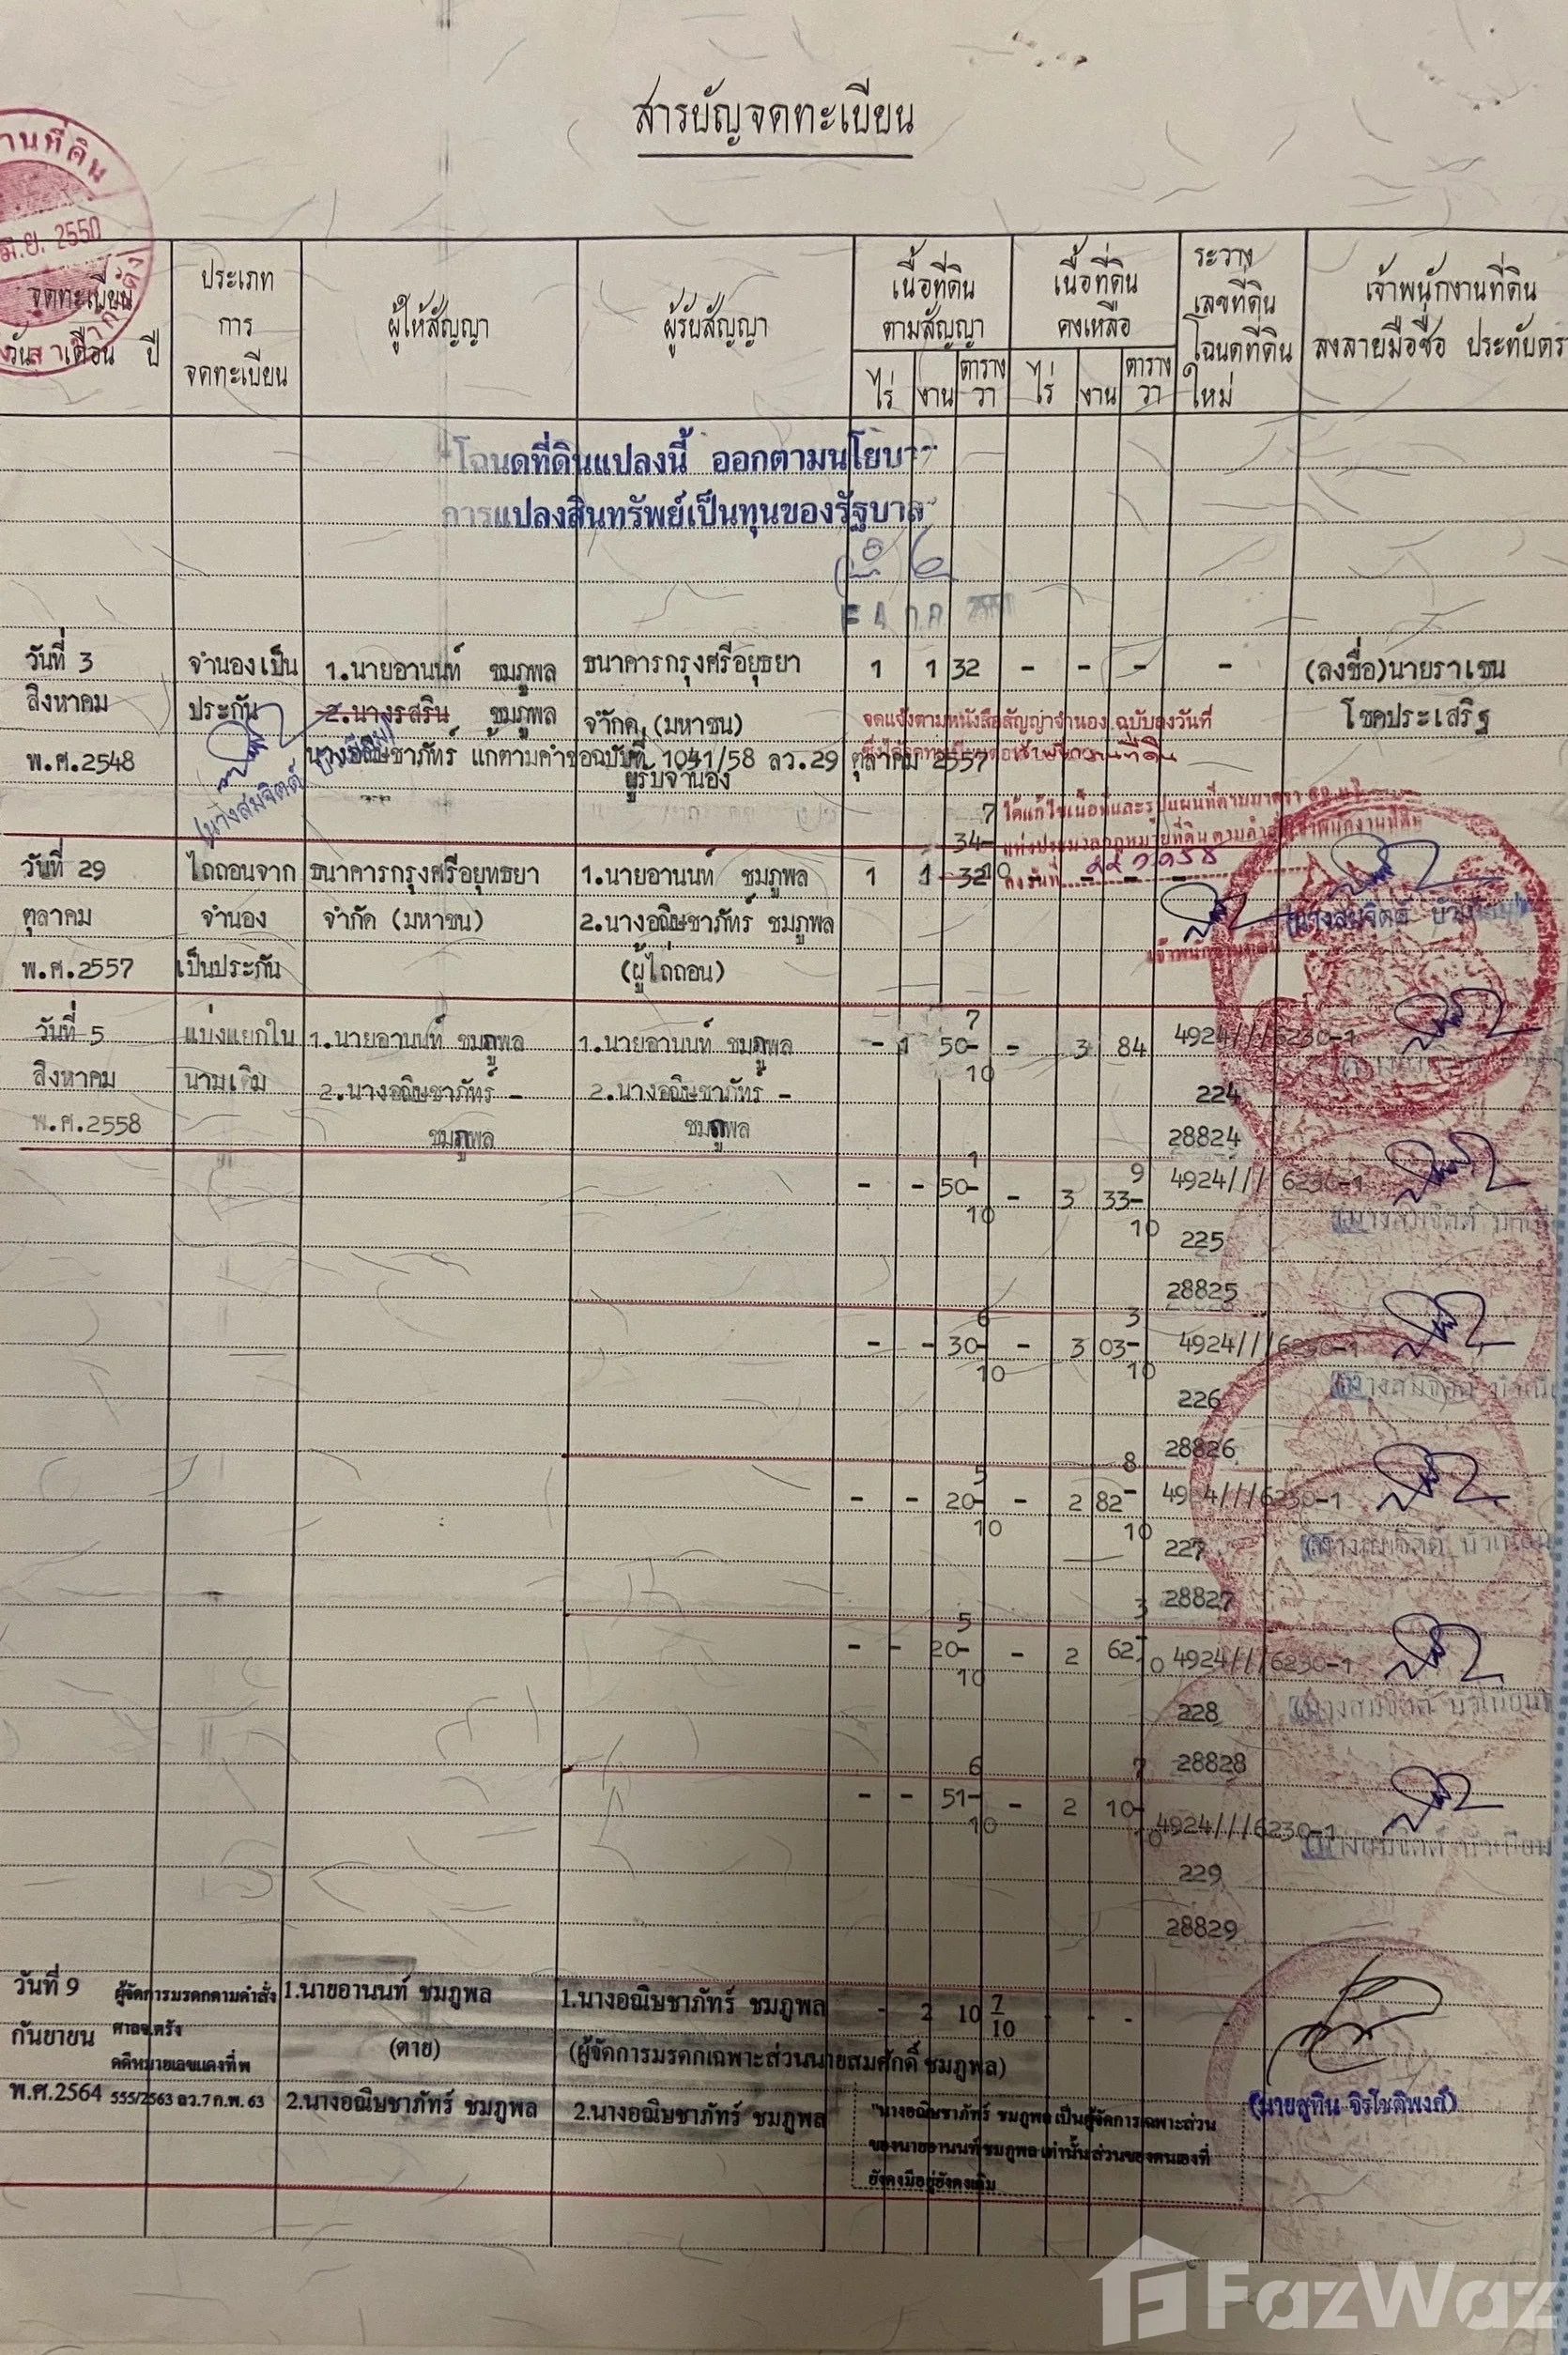 สารบัญจดทะเบียน
มิ.ย. 2550
จดทะเบียน
วัน เดือน ปี
ประเภท
การ
จดทะเบียน
ผู้ให้สัญญา
ผู้รับสัญญา
เนื้อที่ดิน
ตามสัญญา
ไร่ งาน ตาราง
วา
เนื้อที่ดิน
คงเหลือ
ไร่ งาน ตาราง
วา
ระวาง
เลขที่ดิน
โฉนดที่ดิน
ใหม่
เจ้าพนักงานที่ดิน
ลงลายมือชื่อ ประทับตรา
โฉนดที่ดินแปลงนี้ ออกตามนโยบา
การแปลงสินทรัพย์เป็นทุนของรัฐบาล
วันที่ 3 จำนองเป็น 1.นายอานนท์ ชมภูพล ธนาคารกรุงศรีอยุธยา 1 1 32 - - - - (ลงชื่อ)นายราเชน
สิงหาคม ประกัน 2.นางรสริน ชมภูพล จำกัด (มหาชน) โชคประเสริฐ
จดแจ้งตามหนังสือสัญญาจำนอง ฉบับลงวันที่
พ.ศ.2548 นางอณิษชาภัทร์ แก้ตามคำขอฉบับที่ 1041/58 ลว.29 ตุลาคม 2557
ผู้รับจำนอง
ได้แก้ไขเนื้อที่และรูปแผนที่ตามมาตรา
แห่งประมวลกฎหมายที่ดิน ตามคำสั่งเจ้าพนักงานที่ดิน
ลงวันที่
7
34-
10
วันที่ 29 ไถ่ถอนจาก ธนาคารกรุงศรีอยุทธยา 1.นายอานนท์ ชมภูพล 1 1 32 - - - -
ตุลาคม จำนอง จำกัด (มหาชน) 2.นางอณิษชาภัทร์ ชมภูพล
พ.ศ.2557 เป็นประกัน (ผู้ไถ่ถอน)
วันที่ 5 แบ่งแยกใน 1.นายอานนท์ ชมภูพล 1.นายอานนท์ ชมภูพล - 1 50-7/10 - 3 84 4924///6230-1
สิงหาคม นามเดิม 2.นางอณิษชาภัทร์ - 2.นางอณิษชาภัทร์ - 224
พ.ศ.2558 ชมภูพล ชมภูพล 28824
- - 50-1/10 - 3 33-9/10 4924///6230-1
225
28825
- - 30-6/10 - 3 03-3/10 4924///6230-1
226
28826
- - 20-5/10 - 2 82-8/10 4924///6230-1
227
28827
- - 20-5/10 - 2 62-3/10 4924///6230-1
228
28828
- - 51-6/10 - 2 10-7/10 4924///6230-1
229
28829
วันที่ 9 ผู้จัดการมรดกตามคำสั่ง 1.นายอานนท์ ชมภูพล 1.นางอณิษชาภัทร์ ชมภูพล - 2 10 7/10 - - - -
กันยายน ศาลจ.ตรัง (ตาย) (ผู้จัดการมรดกเฉพาะส่วนนายสมศักดิ์ ชมภูพล)
คดีหมายเลขแดงที่ พ
พ.ศ.2564 555/2563 ลว.7 ก.พ. 63 2.นางอณิษชาภัทร์ ชมภูพล 2.นางอณิษชาภัทร์ ชมภูพล (นายสุทิน จิรโชติพงศ์)
"นางอณิษชาภัทร์ ชมภูพล เป็นผู้จัดการเฉพาะส่วน
ของนายอานนท์ ชมภูพล เท่านั้น ส่วนของตนเองที่
ยังคงมีอยู่ยังคงเดิม
FazWaz